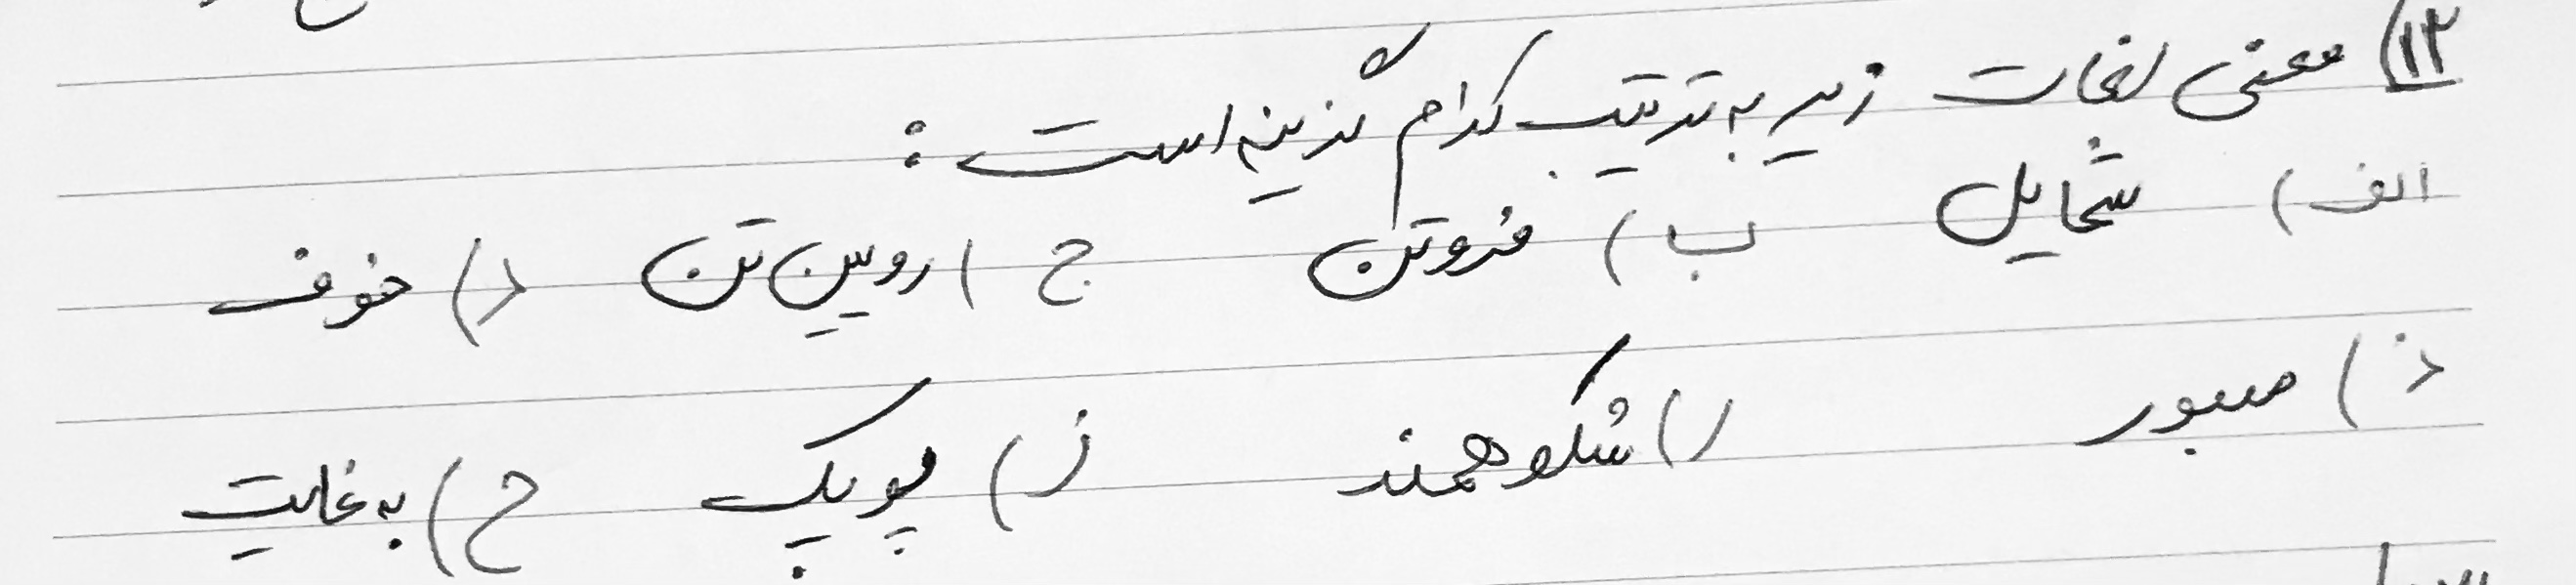 ۱۲) معنی لغات زیر به ترتیب کدام گزینه است :
الف) شمایل ب) فروتن ج) رویین تن د) خوف
ذ) صبور ر) شکوهمند ز) پوپک ح) به غایت